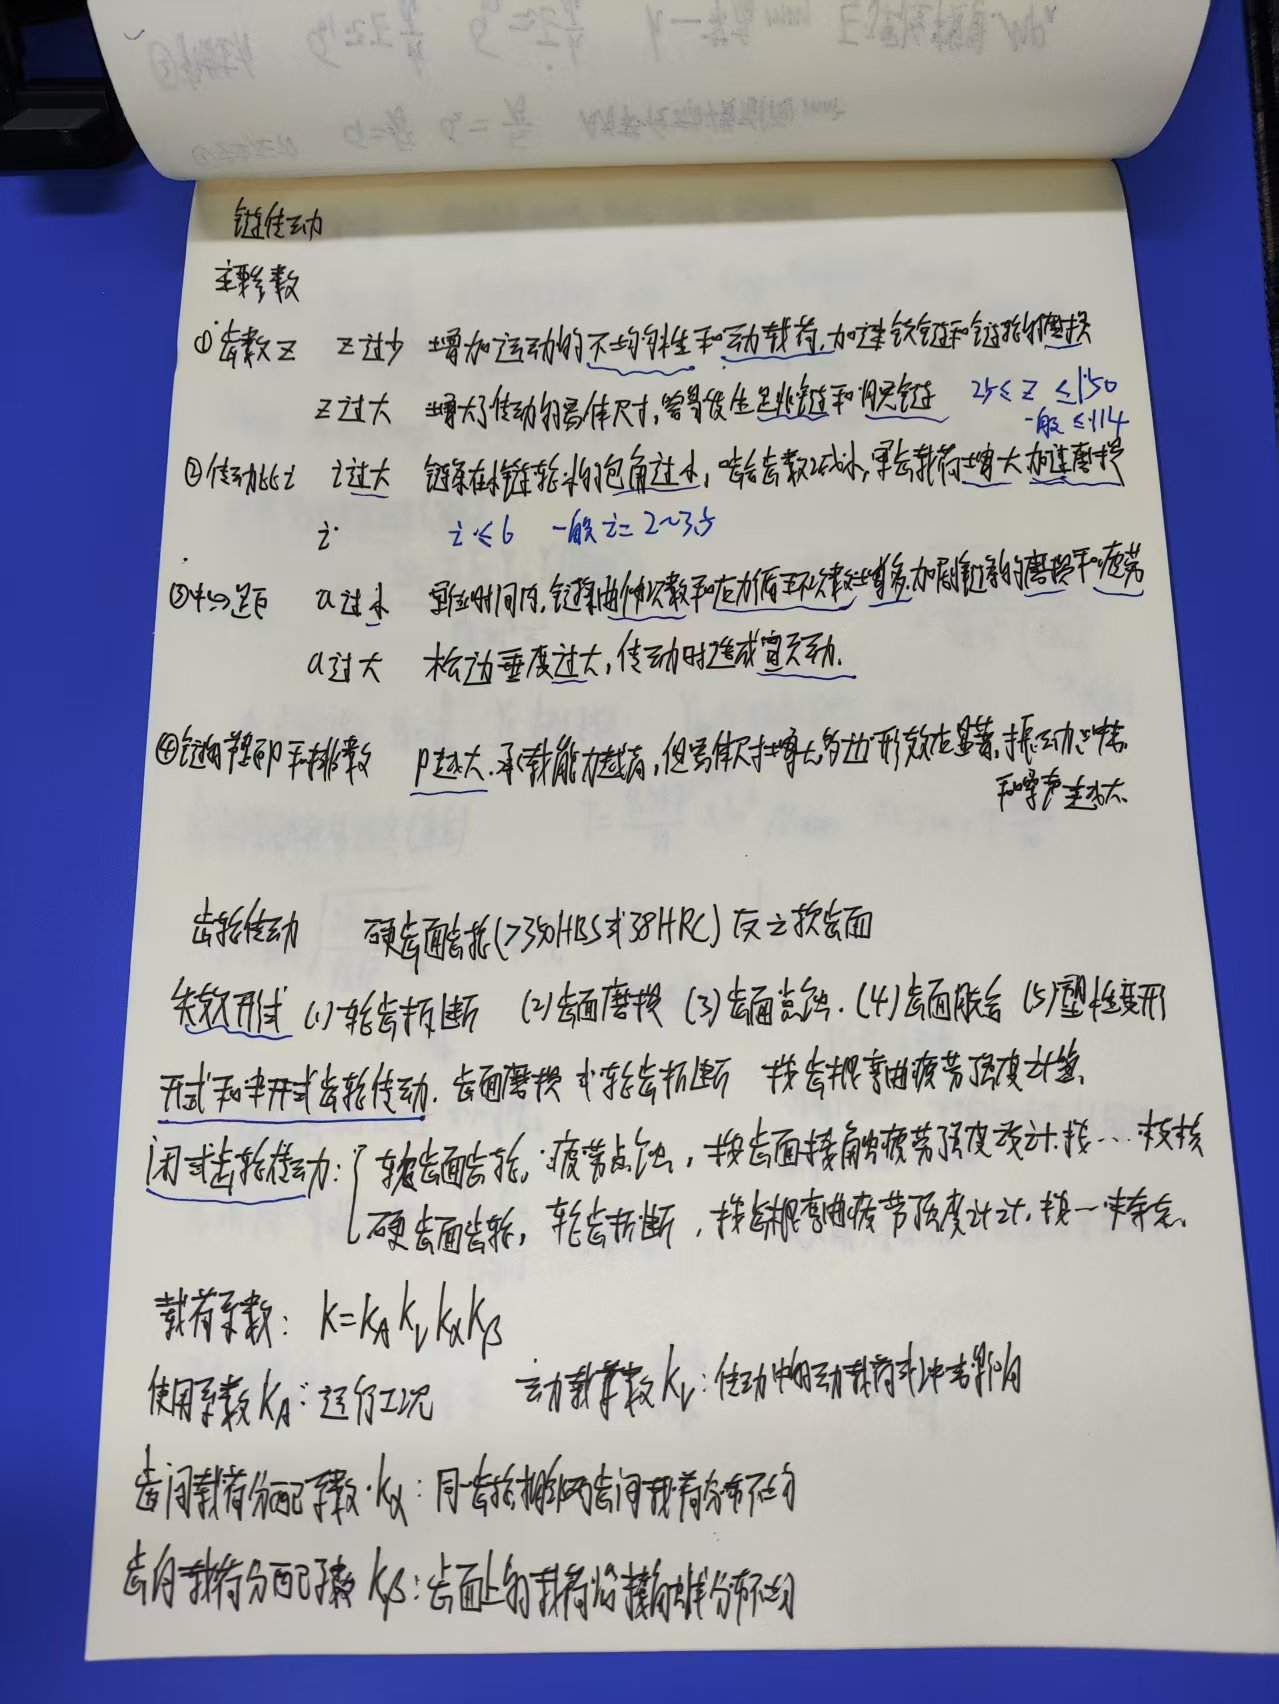 链传动
主要参数
①齿数z z过少 增加运动的不均匀性和动载荷,加速铰链和链轮的磨损
z过大 增大了传动的总体尺寸,容易发生跳链和脱链 25≤z≤150
一般≤114
②传动比i i过大 链条在小链轮上的包角过小,啮合齿数减小,单齿载荷增大加速磨损
i i≤6 一般i=2~3.5
③中心距 a过小 单位时间内,链条曲伸次数和应力循环次数增多,加剧链条的磨损和疲劳
a过大 松边垂度过大,传动时造成颤动.
④链的节距P和排数 P越大.承载能力越高,但总体尺寸增大,多边形效应显著,振动冲击
和噪声越大.
齿轮传动 硬齿面齿轮(>350HBS或38HRC)反之软齿面
失效形式 (1)轮齿折断 (2)齿面磨损 (3)齿面点蚀.(4)齿面胶合 (5)塑性变形
开式和半开式齿轮传动.齿面磨损或轮齿折断 按齿根弯曲疲劳强度计算.
闭式齿轮传动:软齿面齿轮,疲劳点蚀,按齿面接触疲劳强度设计.按…校核
硬齿面齿轮,轮齿折断,按齿根弯曲疲劳强度设计,按一
载荷系数: K=KA Kv Kα Kβ
使用系数KA:运行工况 动载系数Kv:传动中的动载荷或冲击影响
齿间载荷分配系数.Kα:同一齿轮相邻两齿间载荷分布不均
齿向载荷分配系数Kβ:齿面上的载荷沿接触线分布不均